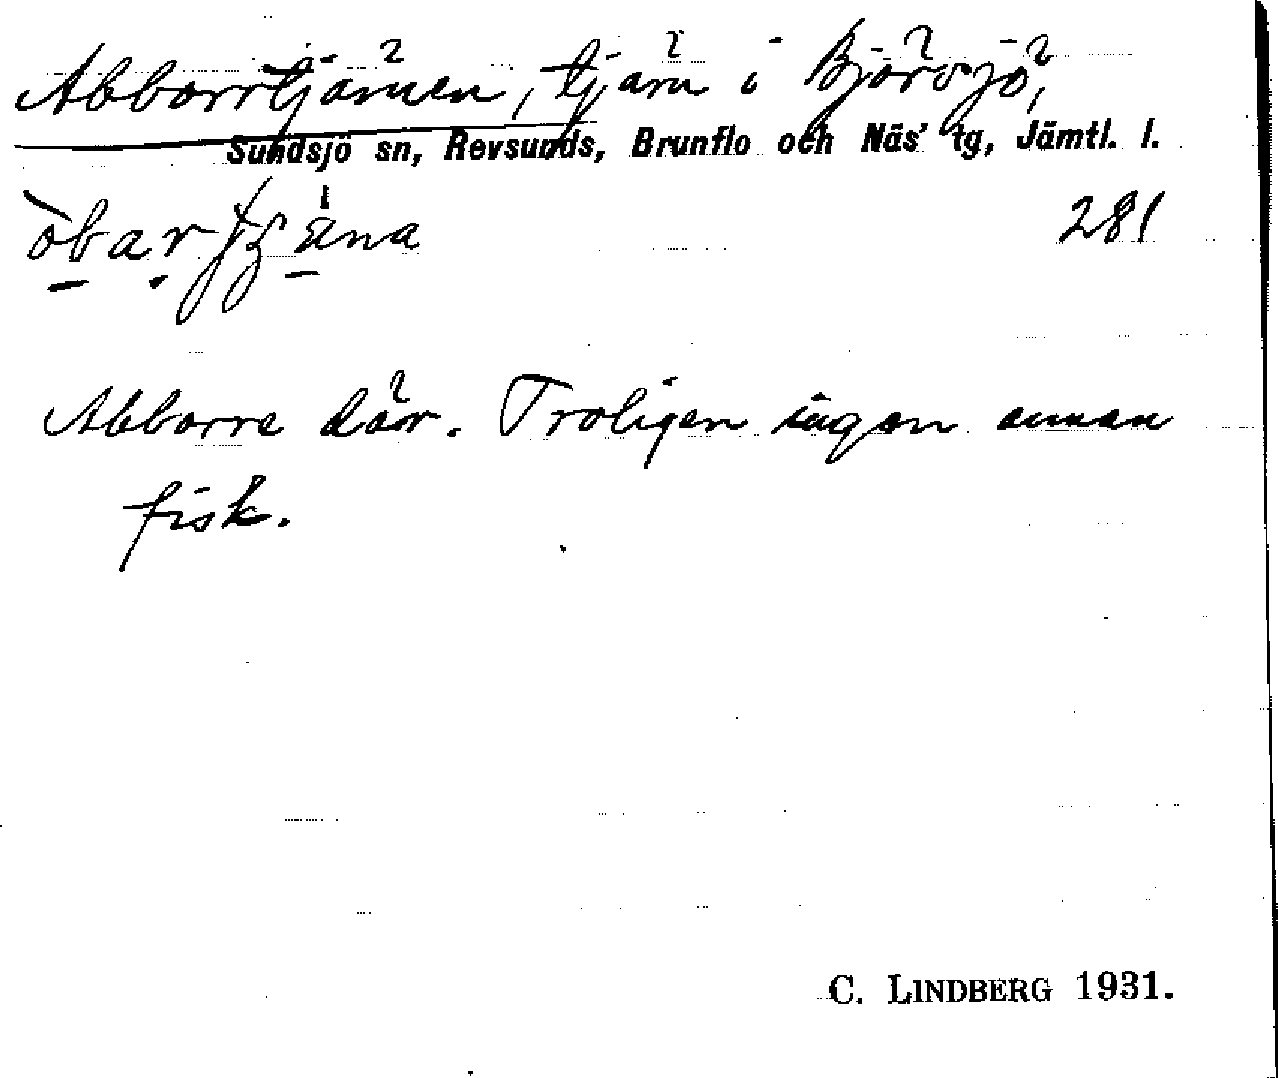 Abborrtjärnen, tjärn i Björsjö,
Sundsjö sn, Revsunds, Brunflo och Näs' tg, Jämtl. l.
281
Abborre där. Troligen ingen annan
fisk.
C. LINDBERG 1931.